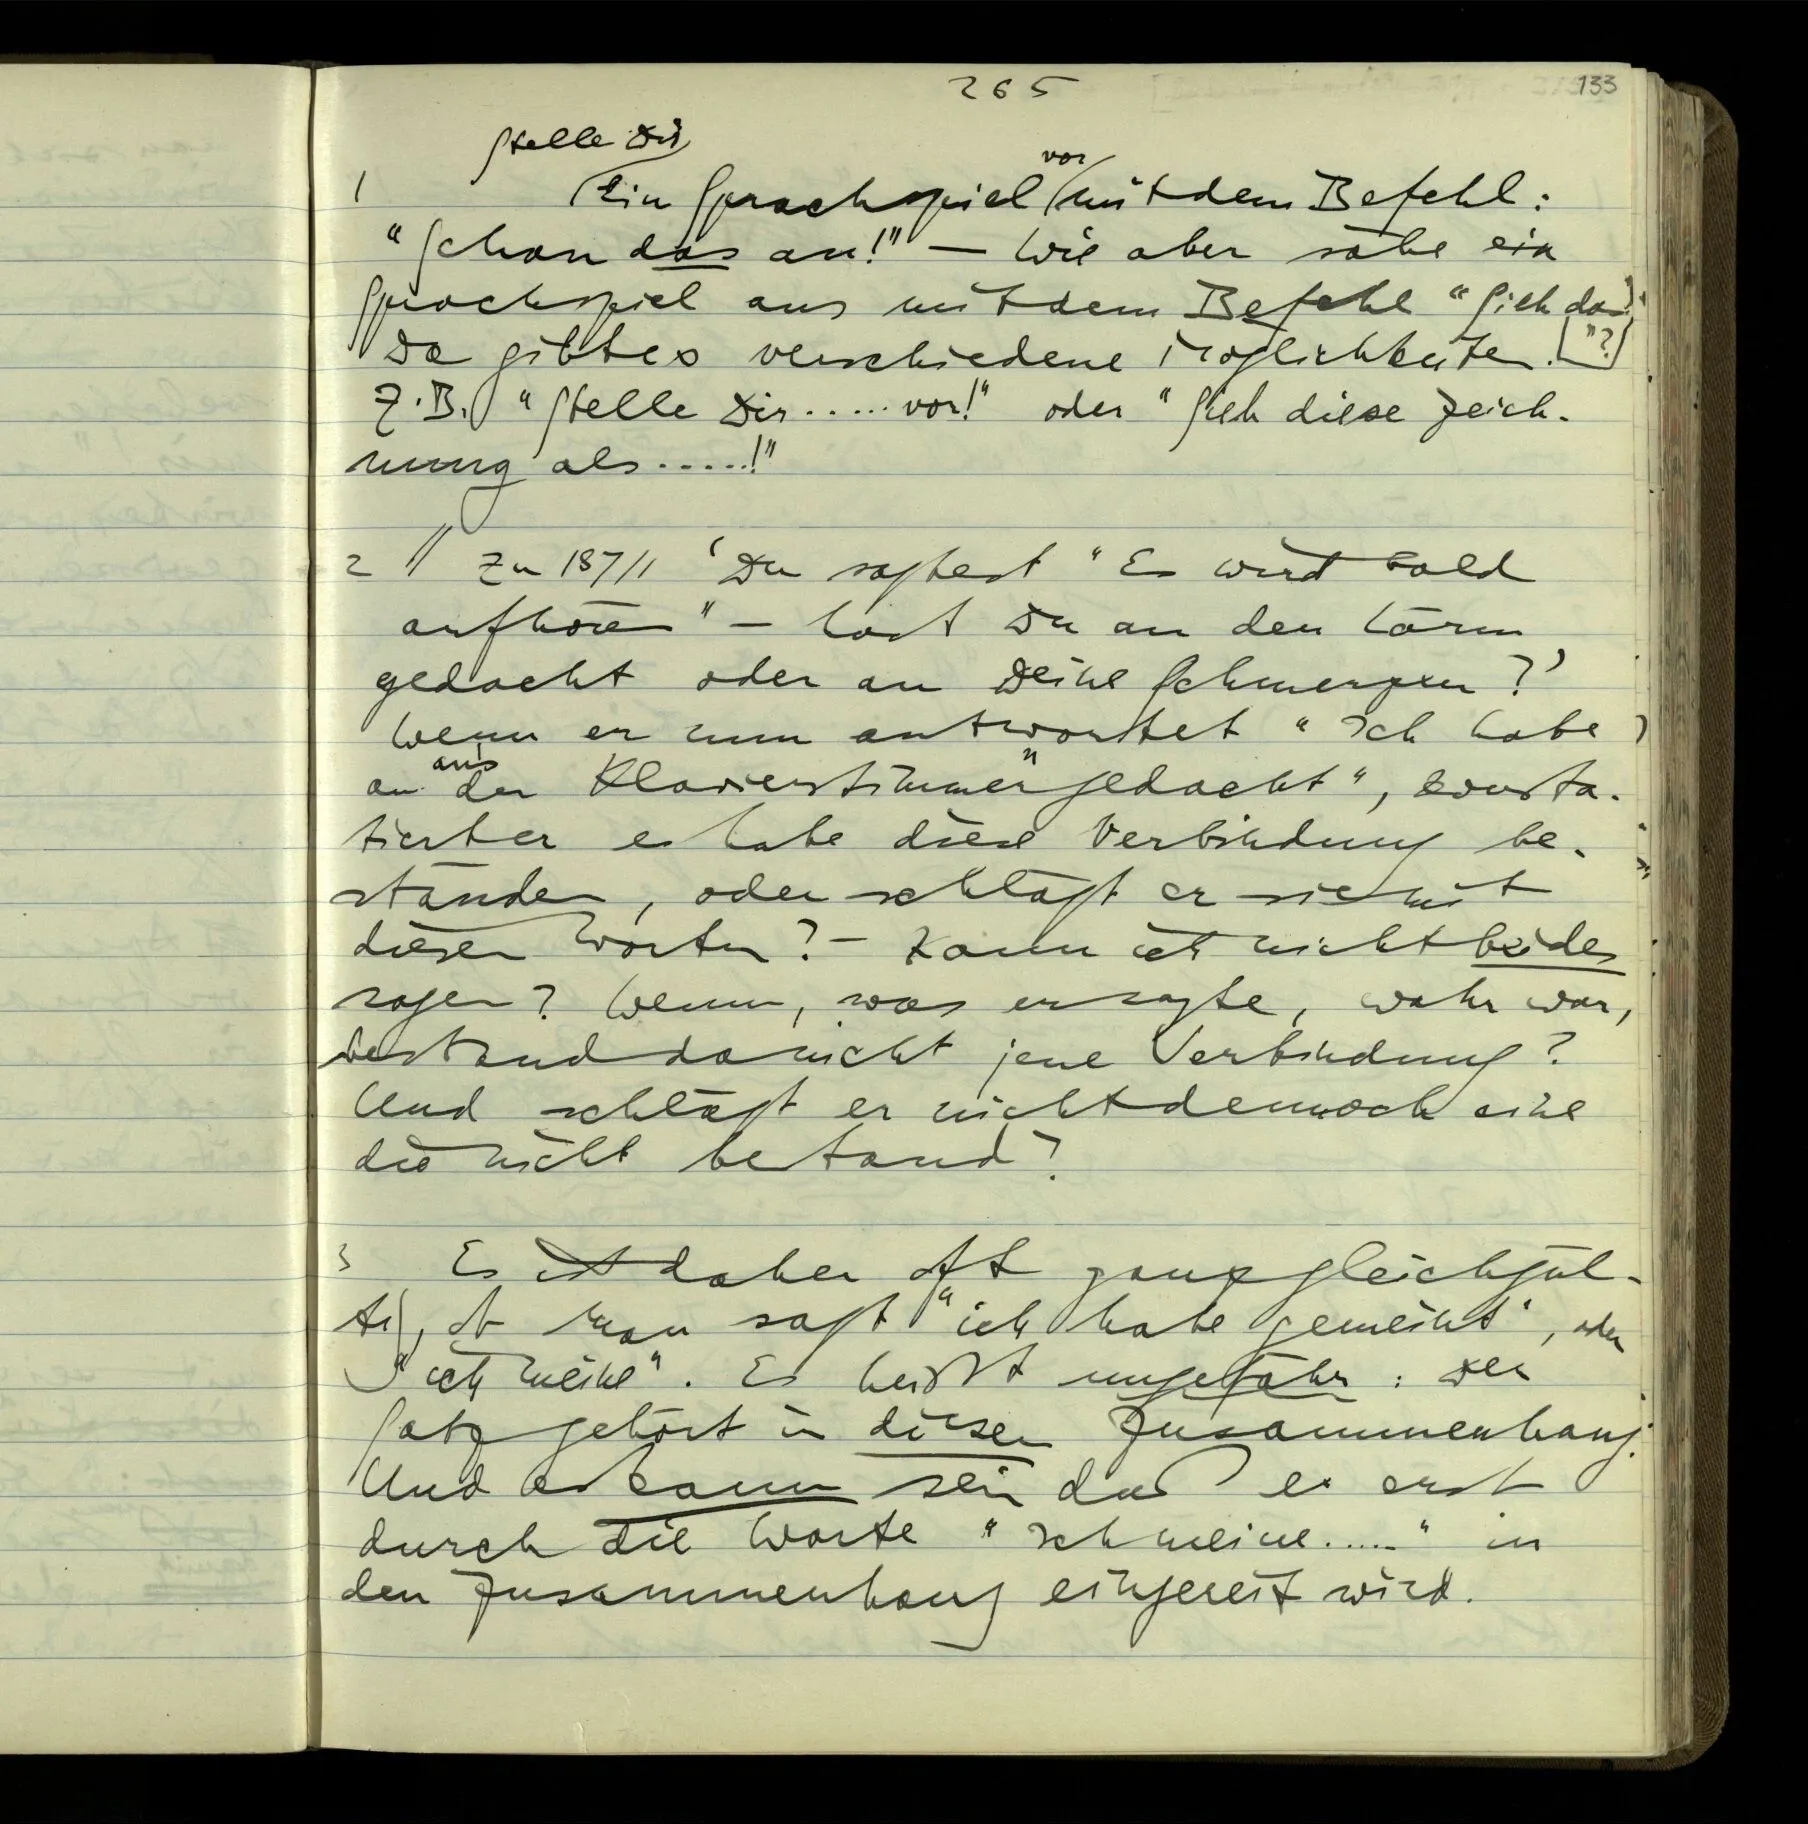 265
133
Stelle Dir
vor
1 Ein Sprachspiel mit dem Befehl:
"Schau das an!" — Wie aber sähe ein
Sprachspiel aus mit dem Befehl "Sieh das
"?
Da gibt es verschiedene Möglichkeiten.
Z.B. "Stelle Dir ..... vor!" oder "Sieh diese Zeich-
nung als .....!"
2 // Zu 187/1 'Du sagtest "Es wird bald
aufhören" — hast Du an den Lärm
gedacht oder an Deine Schmerzen?'
Wenn er nun antwortet "Ich habe
ans
an den Klavierstimmen gedacht", konsta-
tiert er es habe diese Verbindung be-
standen, oder schlägt er sie mit
diesen Worten? — Kann ich nicht beides
sagen? Wenn, was er sagte, wahr war,
bestand da nicht jene Verbindung?
Und schlägt er nicht dennoch eine
die nicht bestand?
3 Es ist daher oft ganz gleichgül-
tig, ob man sagt "ich habe gemeint", oder
"ich meine". Es heißt ungefähr: Der
Satz gehört in diesen Zusammenhang.
Und es kann sein daß er erst
durch die Worte "Ich meine ....." in
den Zusammenhang eingereit wird.